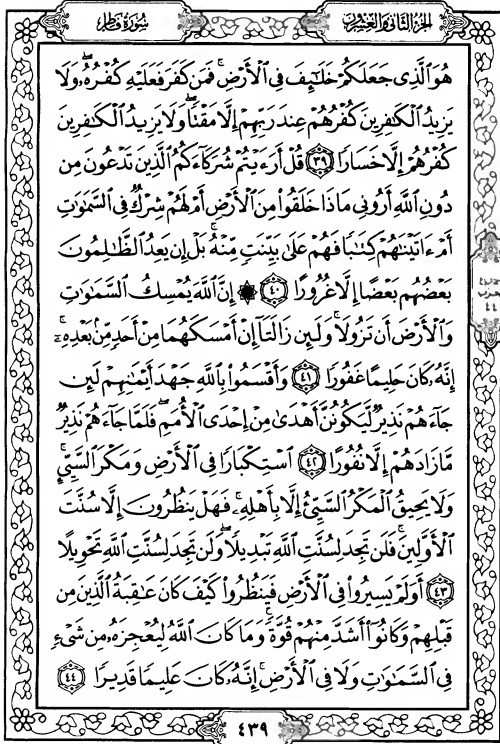 الجزء الثاني والعشرون سورة فاطر
هُوَ ٱلَّذِى جَعَلَكُمْ خَلَٰٓئِفَ فِى ٱلْأَرْضِ ۚ فَمَن كَفَرَ فَعَلَيْهِ كُفْرُهُۥ ۖ وَلَا
يَزِيدُ ٱلْكَٰفِرِينَ كُفْرُهُمْ عِندَ رَبِّهِمْ إِلَّا مَقْتًا ۖ وَلَا يَزِيدُ ٱلْكَٰفِرِينَ
كُفْرُهُمْ إِلَّا خَسَارًا ٣٩ قُلْ أَرَءَيْتُمْ شُرَكَآءَكُمُ ٱلَّذِينَ تَدْعُونَ مِن
دُونِ ٱللَّهِ أَرُونِى مَاذَا خَلَقُوا۟ مِنَ ٱلْأَرْضِ أَمْ لَهُمْ شِرْكٌ فِى ٱلسَّمَٰوَٰتِ
أَمْ ءَاتَيْنَٰهُمْ كِتَٰبًا فَهُمْ عَلَىٰ بَيِّنَتٍ مِّنْهُ ۚ بَلْ إِن يَعِدُ ٱلظَّٰلِمُونَ
بَعْضُهُم بَعْضًا إِلَّا غُرُورًا ٤٠ ۞ إِنَّ ٱللَّهَ يُمْسِكُ ٱلسَّمَٰوَٰتِ
وَٱلْأَرْضَ أَن تَزُولَا ۚ وَلَئِن زَالَتَآ إِنْ أَمْسَكَهُمَا مِنْ أَحَدٍ مِّنۢ بَعْدِهِۦٓ ۚ
إِنَّهُۥ كَانَ حَلِيمًا غَفُورًا ٤١ وَأَقْسَمُوا۟ بِٱللَّهِ جَهْدَ أَيْمَٰنِهِمْ لَئِن
جَآءَهُمْ نَذِيرٌ لَّيَكُونُنَّ أَهْدَىٰ مِنْ إِحْدَى ٱلْأُمَمِ ۖ فَلَمَّا جَآءَهُمْ نَذِيرٌ
مَّا زَادَهُمْ إِلَّا نُفُورًا ٤٢ ٱسْتِكْبَارًا فِى ٱلْأَرْضِ وَمَكْرَ ٱلسَّيِّئِ ۚ
وَلَا يَحِيقُ ٱلْمَكْرُ ٱلسَّيِّئُ إِلَّا بِأَهْلِهِۦ ۚ فَهَلْ يَنظُرُونَ إِلَّا سُنَّتَ
ٱلْأَوَّلِينَ ۚ فَلَن تَجِدَ لِسُنَّتِ ٱللَّهِ تَبْدِيلًا ۖ وَلَن تَجِدَ لِسُنَّتِ ٱللَّهِ تَحْوِيلًا
٤٣ أَوَلَمْ يَسِيرُوا۟ فِى ٱلْأَرْضِ فَيَنظُرُوا۟ كَيْفَ كَانَ عَٰقِبَةُ ٱلَّذِينَ مِن
قَبْلِهِمْ وَكَانُوٓا۟ أَشَدَّ مِنْهُمْ قُوَّةً ۚ وَمَا كَانَ ٱللَّهُ لِيُعْجِزَهُۥ مِن شَىْءٍ
فِى ٱلسَّمَٰوَٰتِ وَلَا فِى ٱلْأَرْضِ ۚ إِنَّهُۥ كَانَ عَلِيمًا قَدِيرًا ٤٤
٤٣٩